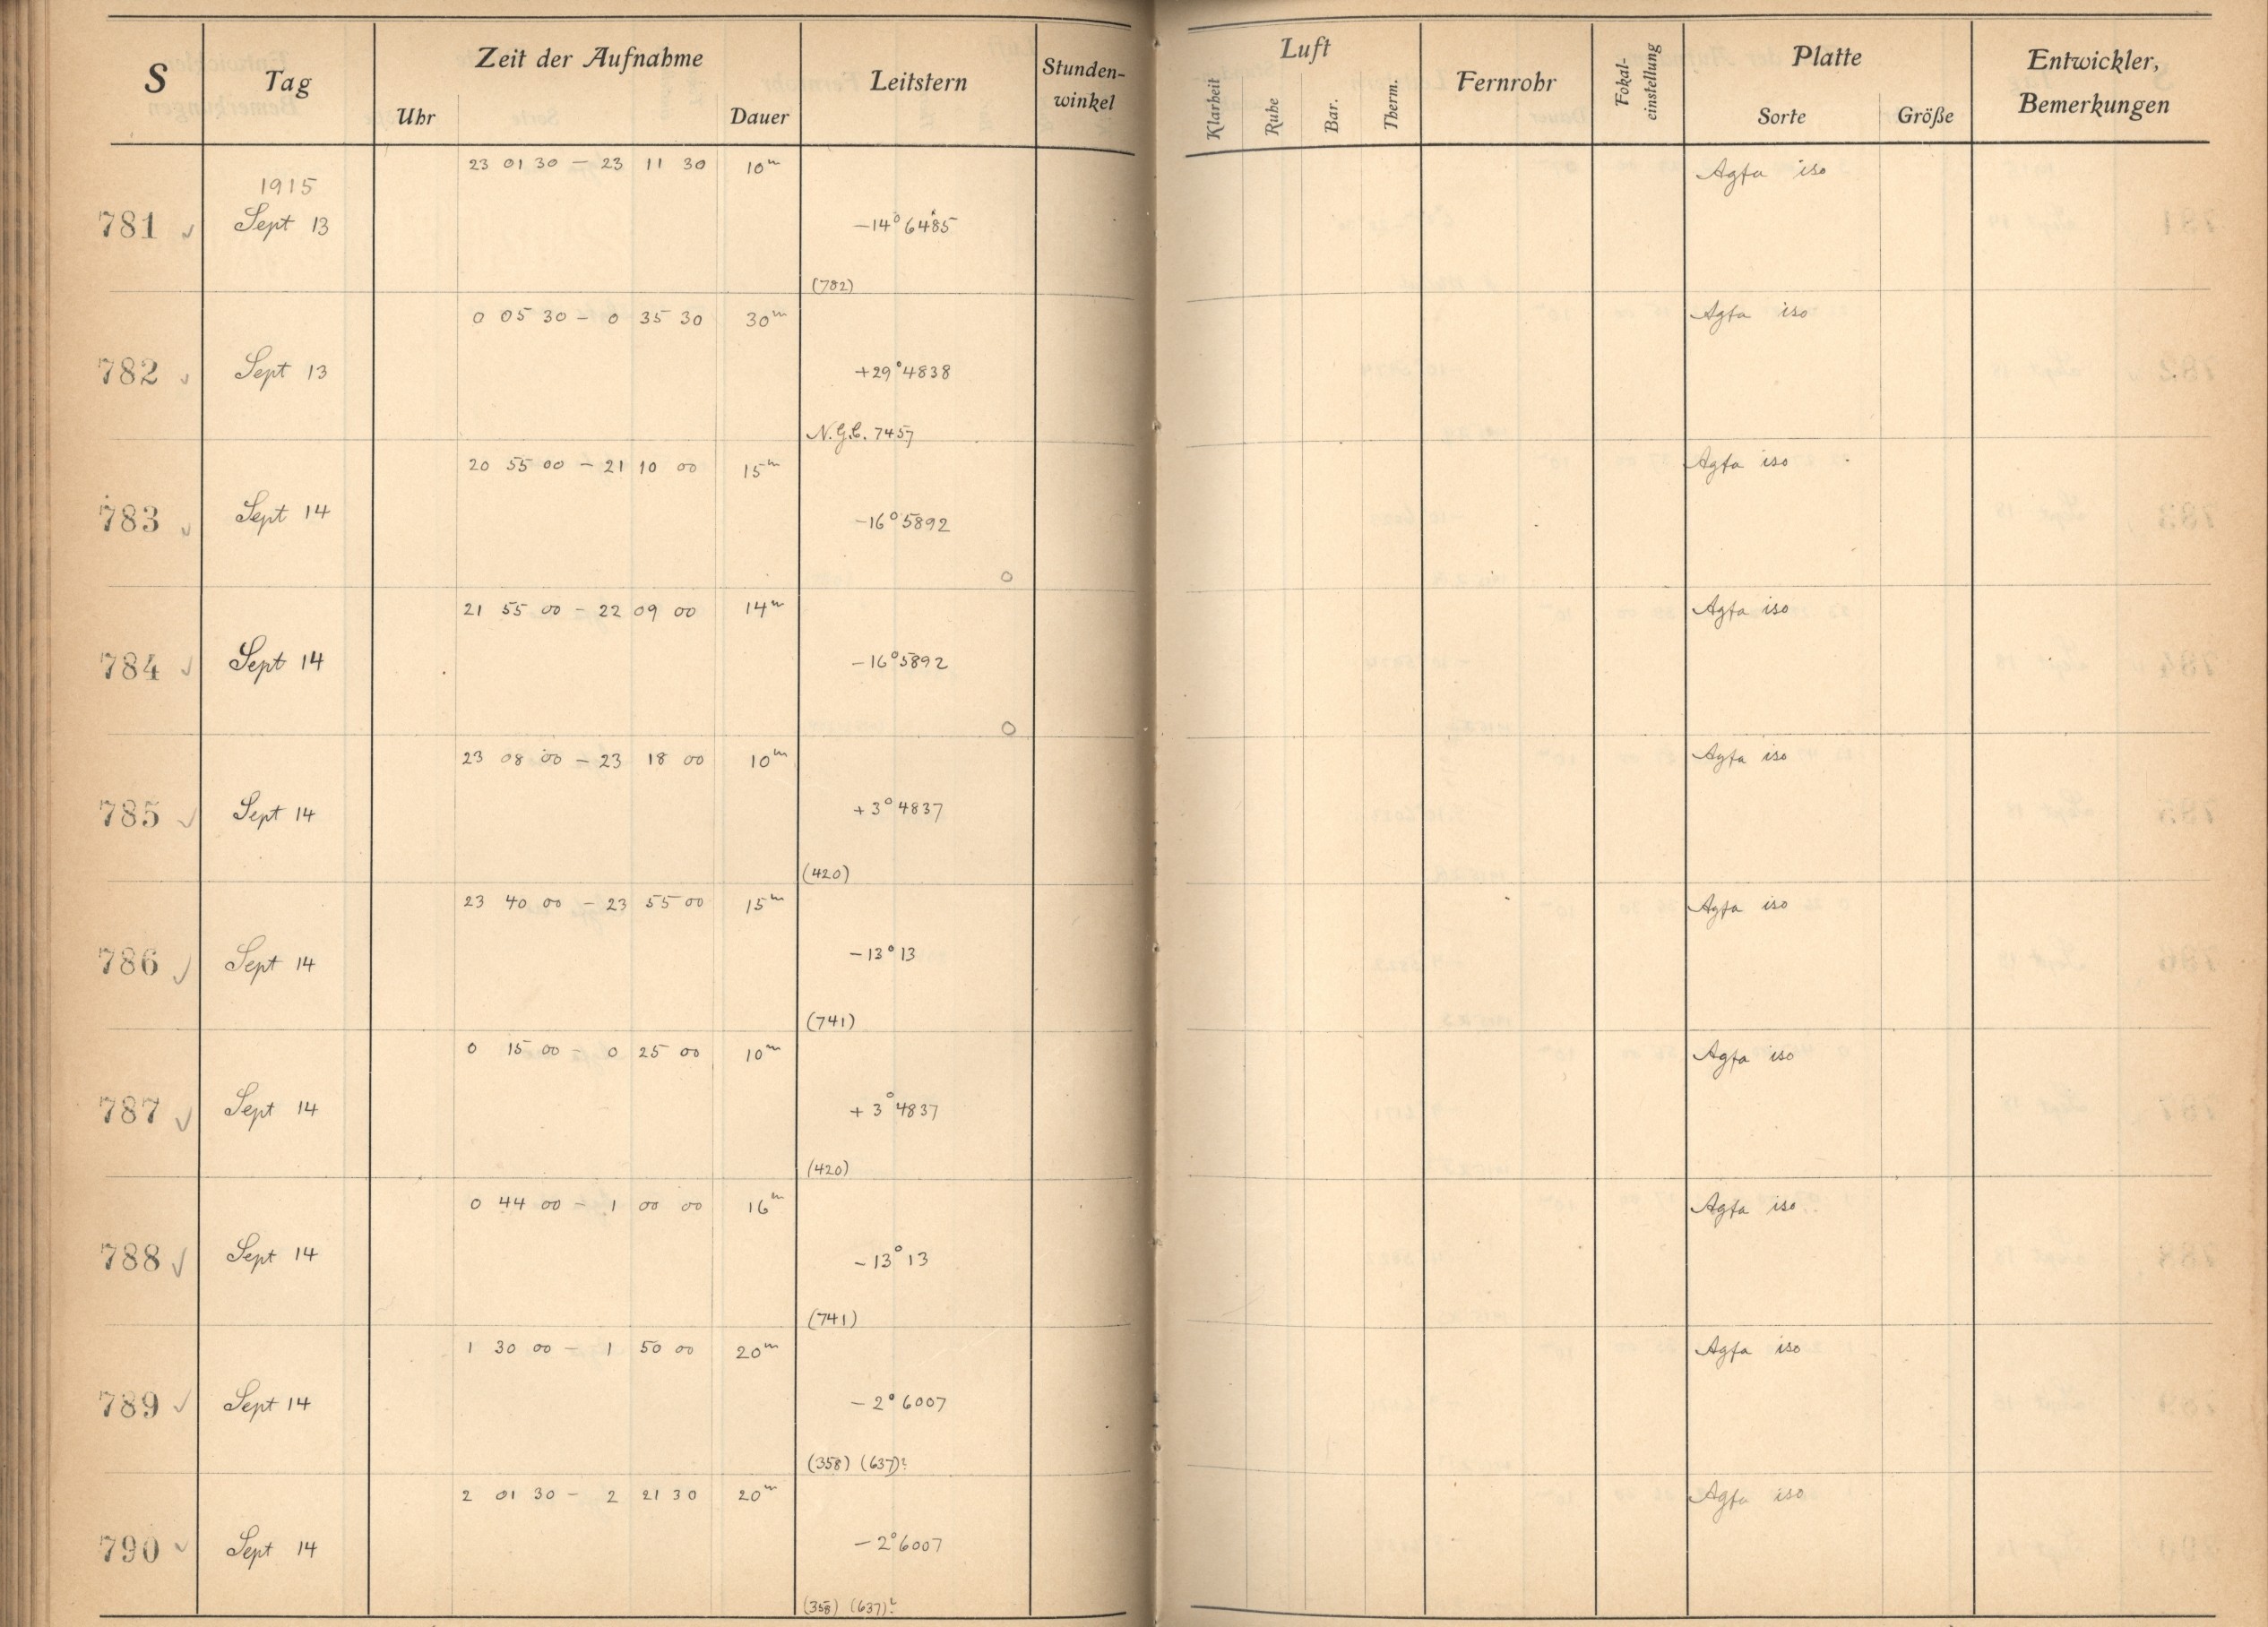 S Tag Zeit der Aufnahme Leitstern Stunden-winkel Luft Fernrohr Fokal-einstellung Platte Entwickler, Bemerkungen
Uhr Dauer Klarheit Ruhe Bar. Therm. Sorte Größe
23 01 30 – 23 11 30 10m Agfa iso
1915
781 Sept 13 –14° 6485
(782)
0 05 30 – 0 35 30 30m Agfa iso
782 Sept 13 +29° 4838
N.G.C. 7457
20 55 00 – 21 10 00 15m Agfa iso
783 Sept 14 –16° 5892
21 55 00 – 22 09 00 14m Agfa iso
784 Sept 14 –16° 5892
23 08 00 – 23 18 00 10m Agfa iso
785 Sept 14 +3° 4837
(420)
23 40 00 – 23 55 00 15m Agfa iso
786 Sept 14 –13° 13
(741)
0 15 00 – 0 25 00 10m Agfa iso
787 Sept 14 +3° 4837
(420)
0 44 00 – 1 00 00 16m Agfa iso
788 Sept 14 –13° 13
(741)
1 30 00 – 1 50 00 20m Agfa iso
789 Sept 14 –2° 6007
(358) (637)?
2 01 30 – 2 21 30 20m Agfa iso
790 Sept 14 –2° 6007
(358) (637)?